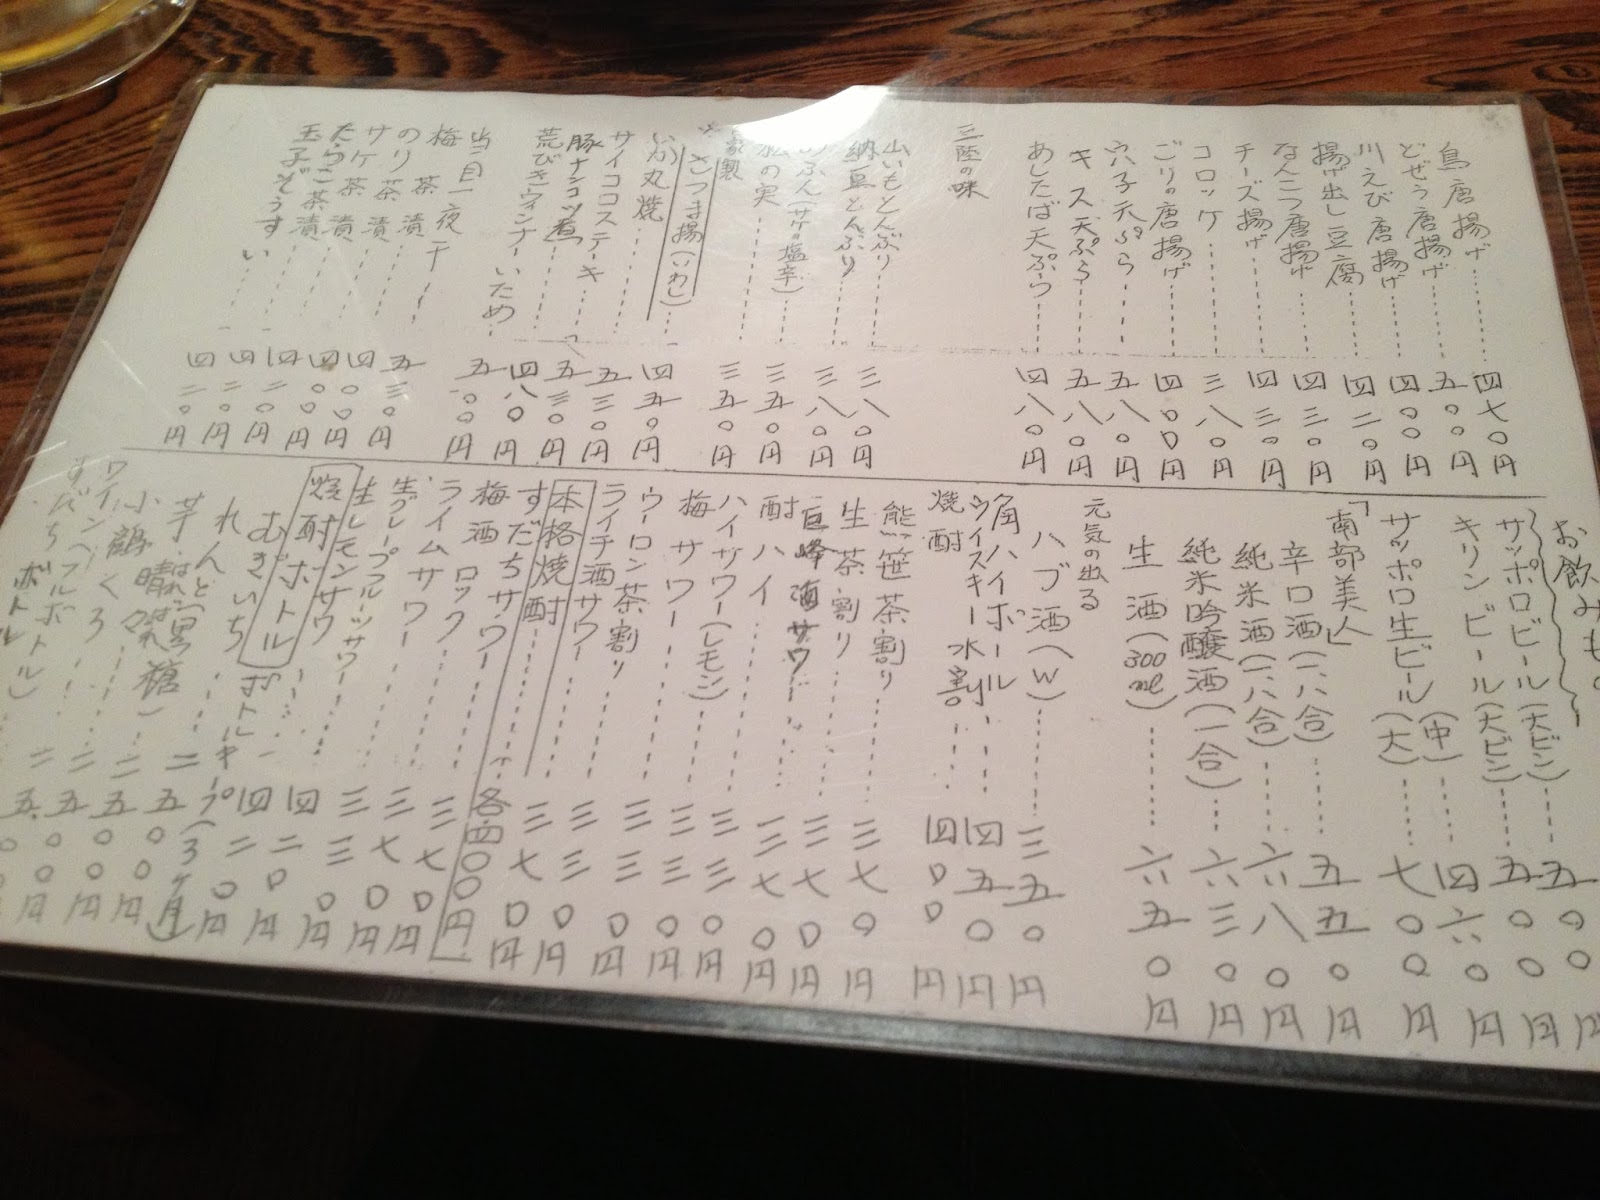 鳥唐揚げ 四七〇円
どぜう唐揚げ 五〇〇円
川えび唐揚げ 四〇〇円
揚げ出し豆腐 四二〇円
なんこつ唐揚げ 四三〇円
チーズ揚げ 四三〇円
コロッケ 三八〇円
ごりの唐揚げ 四〇〇円
穴子天ぷら 五八〇円
キス天ぷら 五八〇円
あしたば天ぷら 四八〇円
三陸の味
山いもとんぶり 三八〇円
納豆とんぶり 三八〇円
めふん(サケの塩辛) 三五〇円
松の実 三五〇円
自家製
さつま揚(いわし) 四五〇円
いか丸焼 五三〇円
サイコロステーキ 五三〇円
豚ナンコツ煮 四八〇円
荒びきウィンナーいため 五〇〇円
当日一夜干
梅茶漬 五三〇円
のり茶漬 四〇〇円
サケ茶漬 四〇〇円
たらこ茶漬 四二〇円
玉子ぞうすい 四二〇円
四二〇円
お飲みもの
サッポロビール(大ビン) 五〇〇円
キリンビール(大ビン) 五〇〇円
(中) 四六〇円
サッポロ生ビール(大) 七〇〇円
「南部美人」
辛口酒(一、八合) 五五〇円
純米酒(一、八合) 六八〇円
純米吟醸酒(一合) 六三〇円
生酒(300ml) 六五〇円
元気の出る
ハブ酒(W) 三五〇円
角ハイボール 四五〇円
ウイスキー水割 四〇〇円
焼酎
熊笹茶割り 三七〇円
生茶割り 三七〇円
巨峰酒サワー 三七〇円
酎ハイ
ハイサワー(レモン) 三三〇円
梅サワー 三三〇円
ウーロン茶割り 三三〇円
ライチ酒サワー 三三〇円
本格焼酎 各四〇〇円
すだちサワー 三七〇円
梅酒ロック
ライムサワー
生グレープフルーツサワー
生レモンサワー
焼酎ボトル
むぎいち
れんと(黒糖)
芋
小鶴くろ
晴耕
ワインフルボトル
すだちボトル
キープ(3ヶ月)